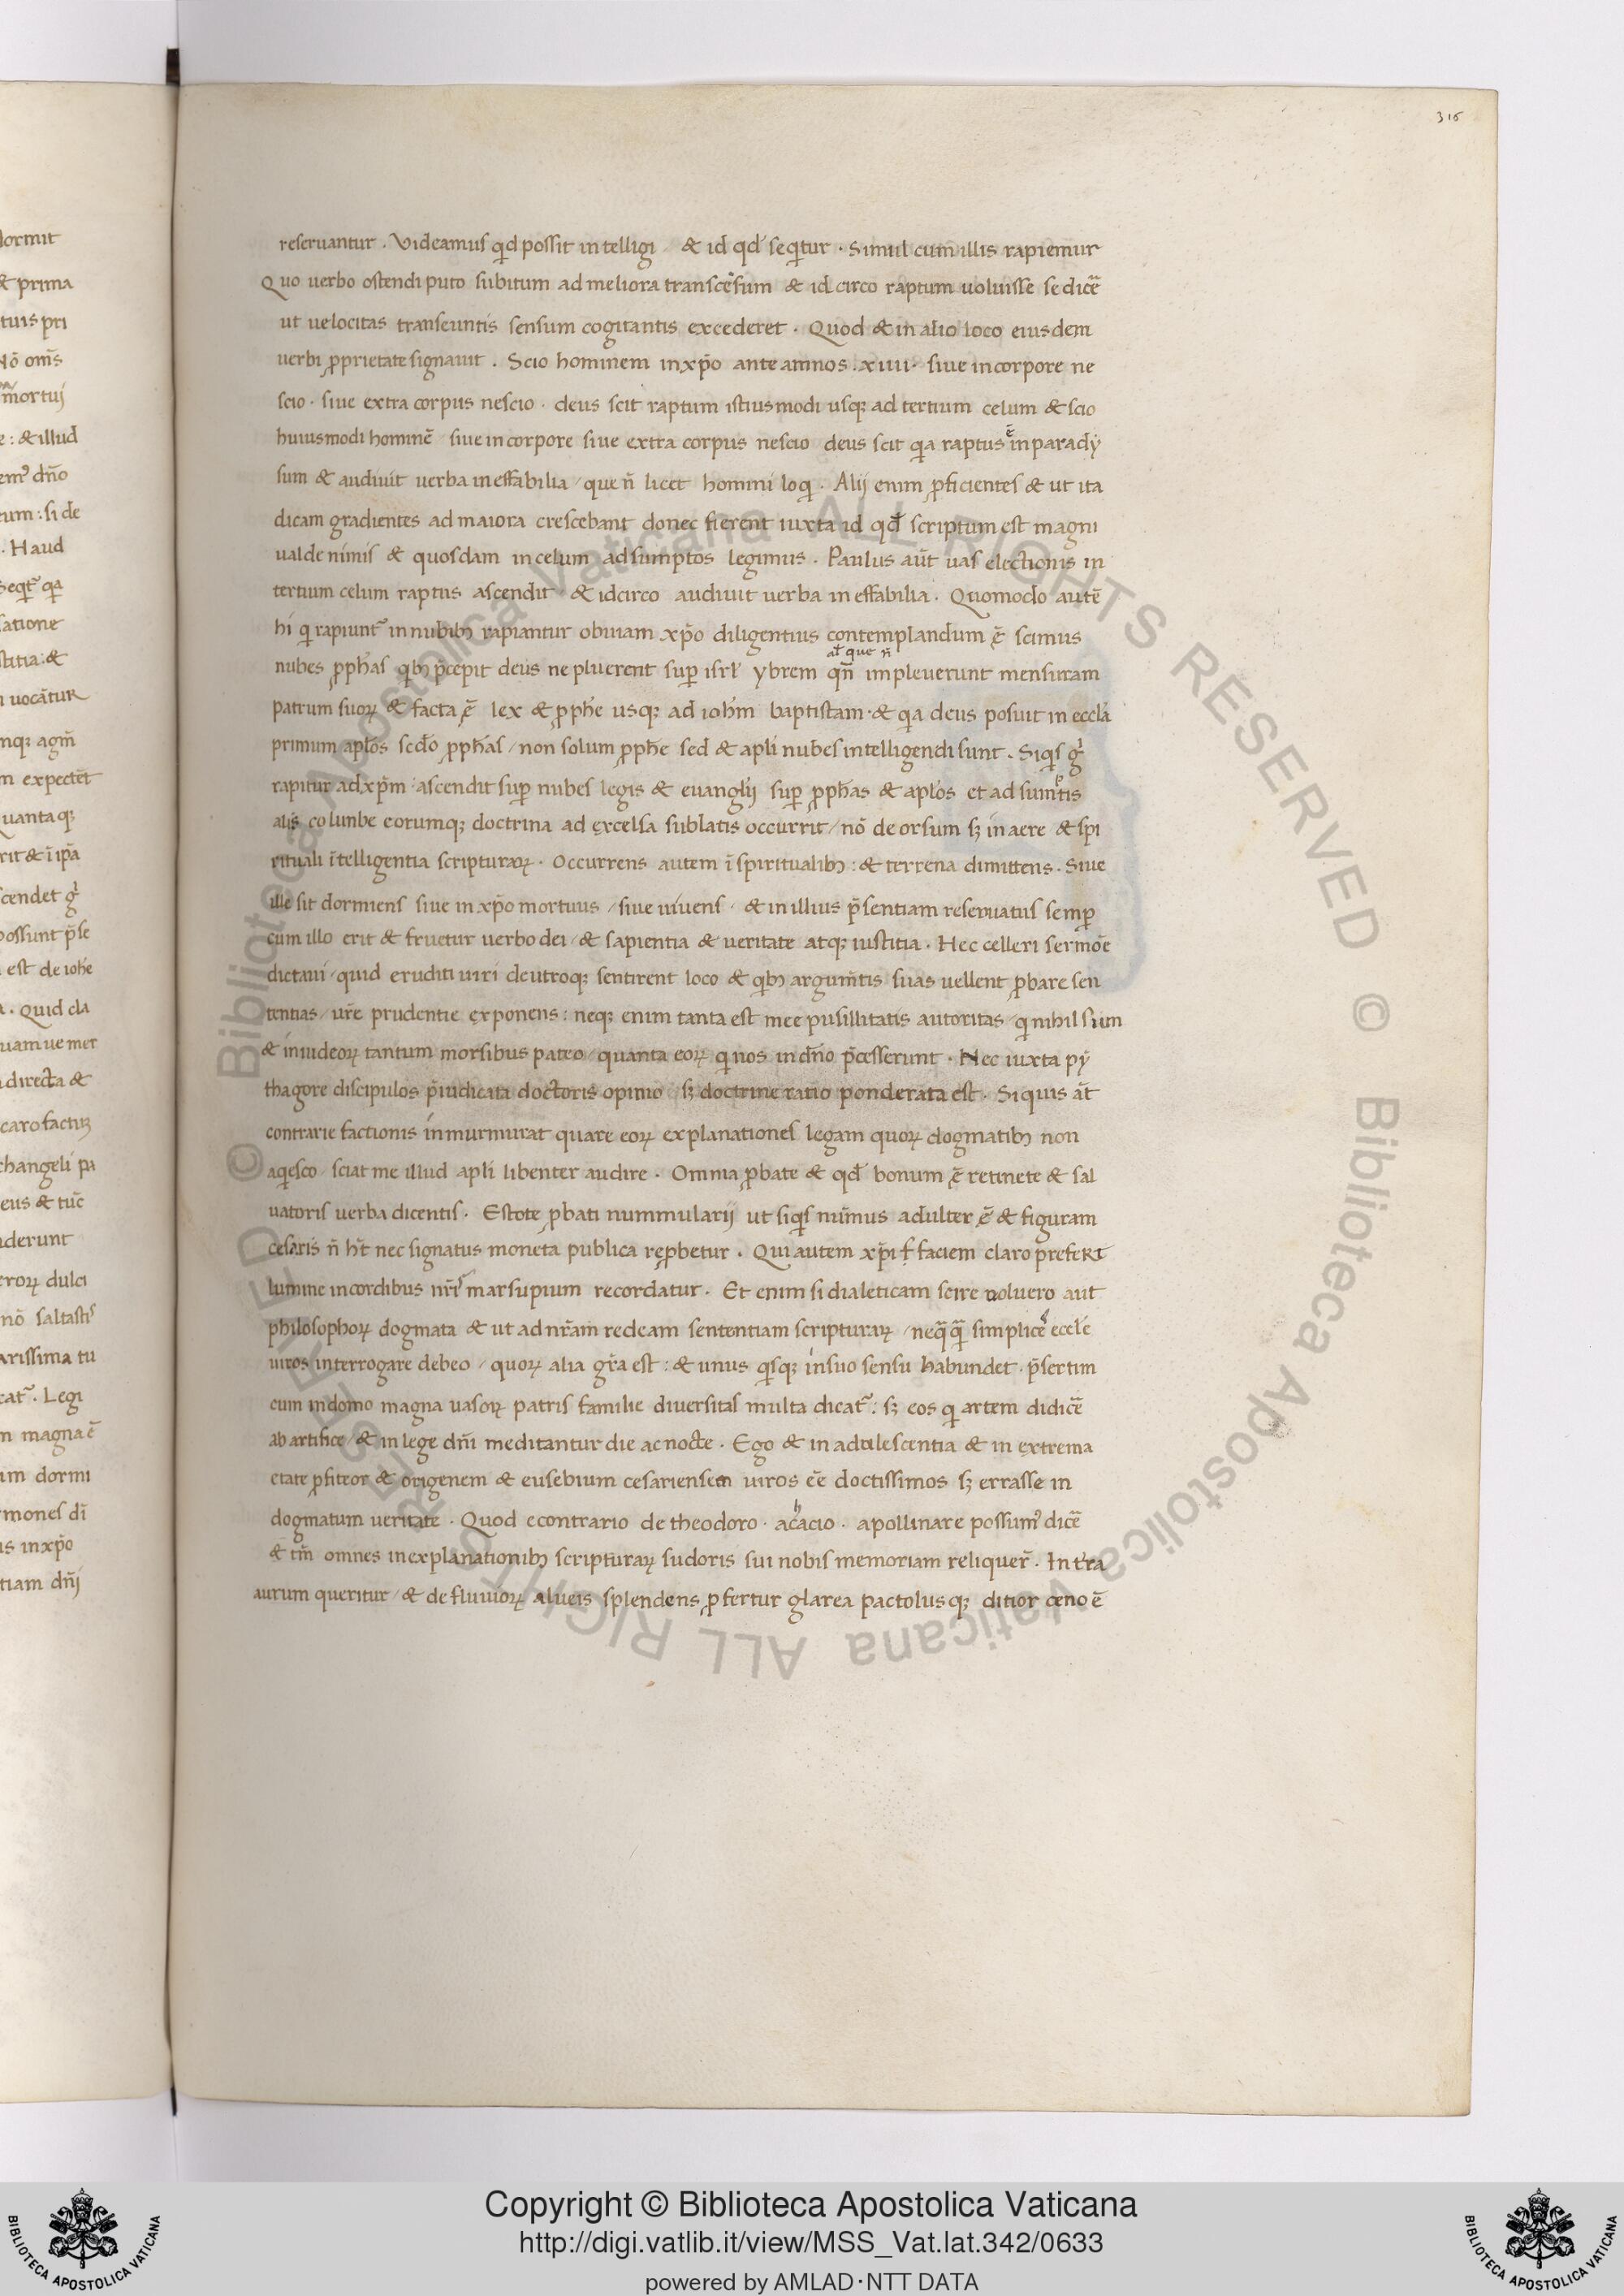 316
reseruantur . Videamus qd possit intelligi & id qđ seqtur . Simul cum illis rapiemur
Quo uerbo ostendi puto subitum ad meliora transcēsum & id circo raptum uoluisse se dicē
ut uelocitas transeuntis sensum cogitantis excederet . Quod & in alio loco eiusdem
uerbi ꝓprietate signauit . Scio hominem in xp̄o ante annos . xiiii . siue in corpore ne
scio . siue extra corpus nescio . deus scit raptum istiusmodi usqꝫ ad tertium celum & scio
huiusmodi hominē siue in corpore siue extra corpus nescio deus scit qa raptus ē in parady
sum & audiuit uerba ineffabilia / que n̄ licet homini loq . Alij enim ꝓficientes & ut ita
dicam gradientes ad maiora crescebant donec fierent iuxta id qđ scriptum est magni
ualde nimis & quosdam in celum adsumptos legimus . Paulus aūt uas electionis in
tertium celum raptus ascendit & idcirco audiuit uerba ineffabilia . Quomodo autē
hi q rapiunt᷑ in nubibꝫ rapiantur obuiam xp̄o diligentius contemplandum ē scimus
al̄ que n̄
nubes ꝓphās qbꝫ p̄cepit deus ne pluerent suꝑ isrl̄ ybrem qn̄ impleuerunt mensuram
patrum suoꝝ & facta ē lex & ꝓphe usqꝫ ad ioh̄m baptistam . & qa deus posuit in eccl̄a
primum apl̄os sed̄o ꝓphās / non solum ꝓphe sed & apl̄i nubes intelligendi sunt . Siqs g̊
rapitur ad xp̄m ascendit suꝑ nubes legis & euangl̄ij suꝑ ꝓphas & apl̄os et ad sumptis
alis columbe eorumqꝫ doctrina ad excelsa sublatis occurrit / nō deorsum sꝫ in aere & spi
rituali ītelligentia scripturaꝝ . Occurrens autem ī spiritualibꝫ : & terrena dimittens . Siue
ille sit dormiens siue in xp̄o mortuus / siue uiuens / & in illius p̄sentiam reseruatus semꝑ
cum illo erit & fruetur uerbo dei / & sapientia & ueritate atqꝫ iustitia . Hec celleri sermōe
dictaui / quid eruditi uiri de utroqꝫ sentirent loco & qbꝫ argum̄tis suas uellent ꝓbare sen
tentias / ur̄e prudentie exponens : neqꝫ enim tanta est mee pusillitatis autoritas / q nihil sum
& inuideoꝝ tantum morsibus pateo / quanta eoꝝ q nos in dn̄o p̄cesserunt . Nec iuxta pẏ
thagore discipulos p̄iudicata doctoris opinio sꝫ doctrine ratio ponderata est . Si quis āt
contrarie factionis inmurmurat quare eoꝝ explanationes legam quoꝝ dogmatibꝫ non
aqesco / sciat me illud apl̄i libenter audire . Omnia ꝓbate & qđ bonum ē retinete & sal
uatoris uerba dicentis . Estote ꝓbati nummularij ut siqs nūmus adulter ē & figuram
cesaris n̄ h̄t nec signatus moneta publica reꝓbetur . Qui autem xp̄i faciem claro prefert
lumine in cordibus nr̄is marsupium recordatur . Et enim si dialeticam scire uoluero aut
philosophoꝝ dogmata & ut ad nr̄am redeam sententiam scripturaꝝ / neqq̄ simplices eccl̄e
uiros interrogare debeo / quoꝝ alia gr̄a est : & unus qsqꝫ in suo sensu habundet . p̄sertim
cum in domo magna uasoꝝ patris familie diuersitas multa dicat᷑ : sꝫ eos q artem didicē
ab artifice / & in lege dn̄i meditantur die ac nocte . Ego & in adulescentia & in extrema
etate ꝓfiteor & origenem & eusebium cesariensem uiros eē doctissimos sꝫ errasse in
dogmatum ueritate . Quod econtrario de theodoro . achacio . apollinare possumꝰ dicē
& tm̄ omnes in explanationibꝫ scripturaꝝ sudoris sui nobis memoriam reliquer̄ . In t̄ra
aurum queritur / & de fluuioꝝ alueis splendens ꝓfertur glarea pactolusqꝫ ditior ceno ē
Copyright © Biblioteca Apostolica Vaticana
http://digi.vatlib.it/view/MSS_Vat.lat.342/0633
powered by AMLAD·NTT DATA
BIBLIOTECA APOSTOLICA VATICANA
BIBLIOTECA APOSTOLICA VATICANA
© Biblioteca Apostolica Vaticana ALL RIGHTS RESERVED © Biblioteca Apostolica Vaticana ALL RIGHTS RESERVED